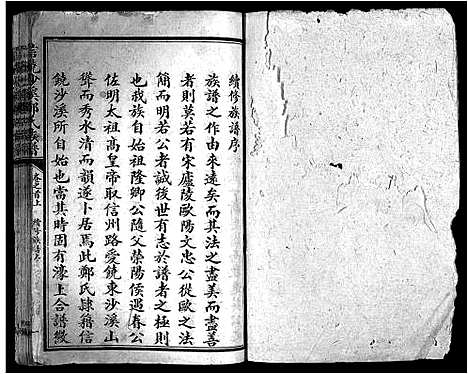 續修族譜序
族譜之作由來遠矣而其法之盡美而盡善
者則莫若有宋廬陵歐陽文忠公從歐之法
簡而明若公者誠後世有志於譜者之極則
也我族自始祖隆卿公隨父滎陽侯遇春公
佐明太祖高皇帝取信州路愛饒東沙溪山
聳而秀水清而韻遂卜居焉此鄭氏肄籍信
饒沙溪所自始也當其時固有濠上合譜緻
卷之首上
續修族譜序